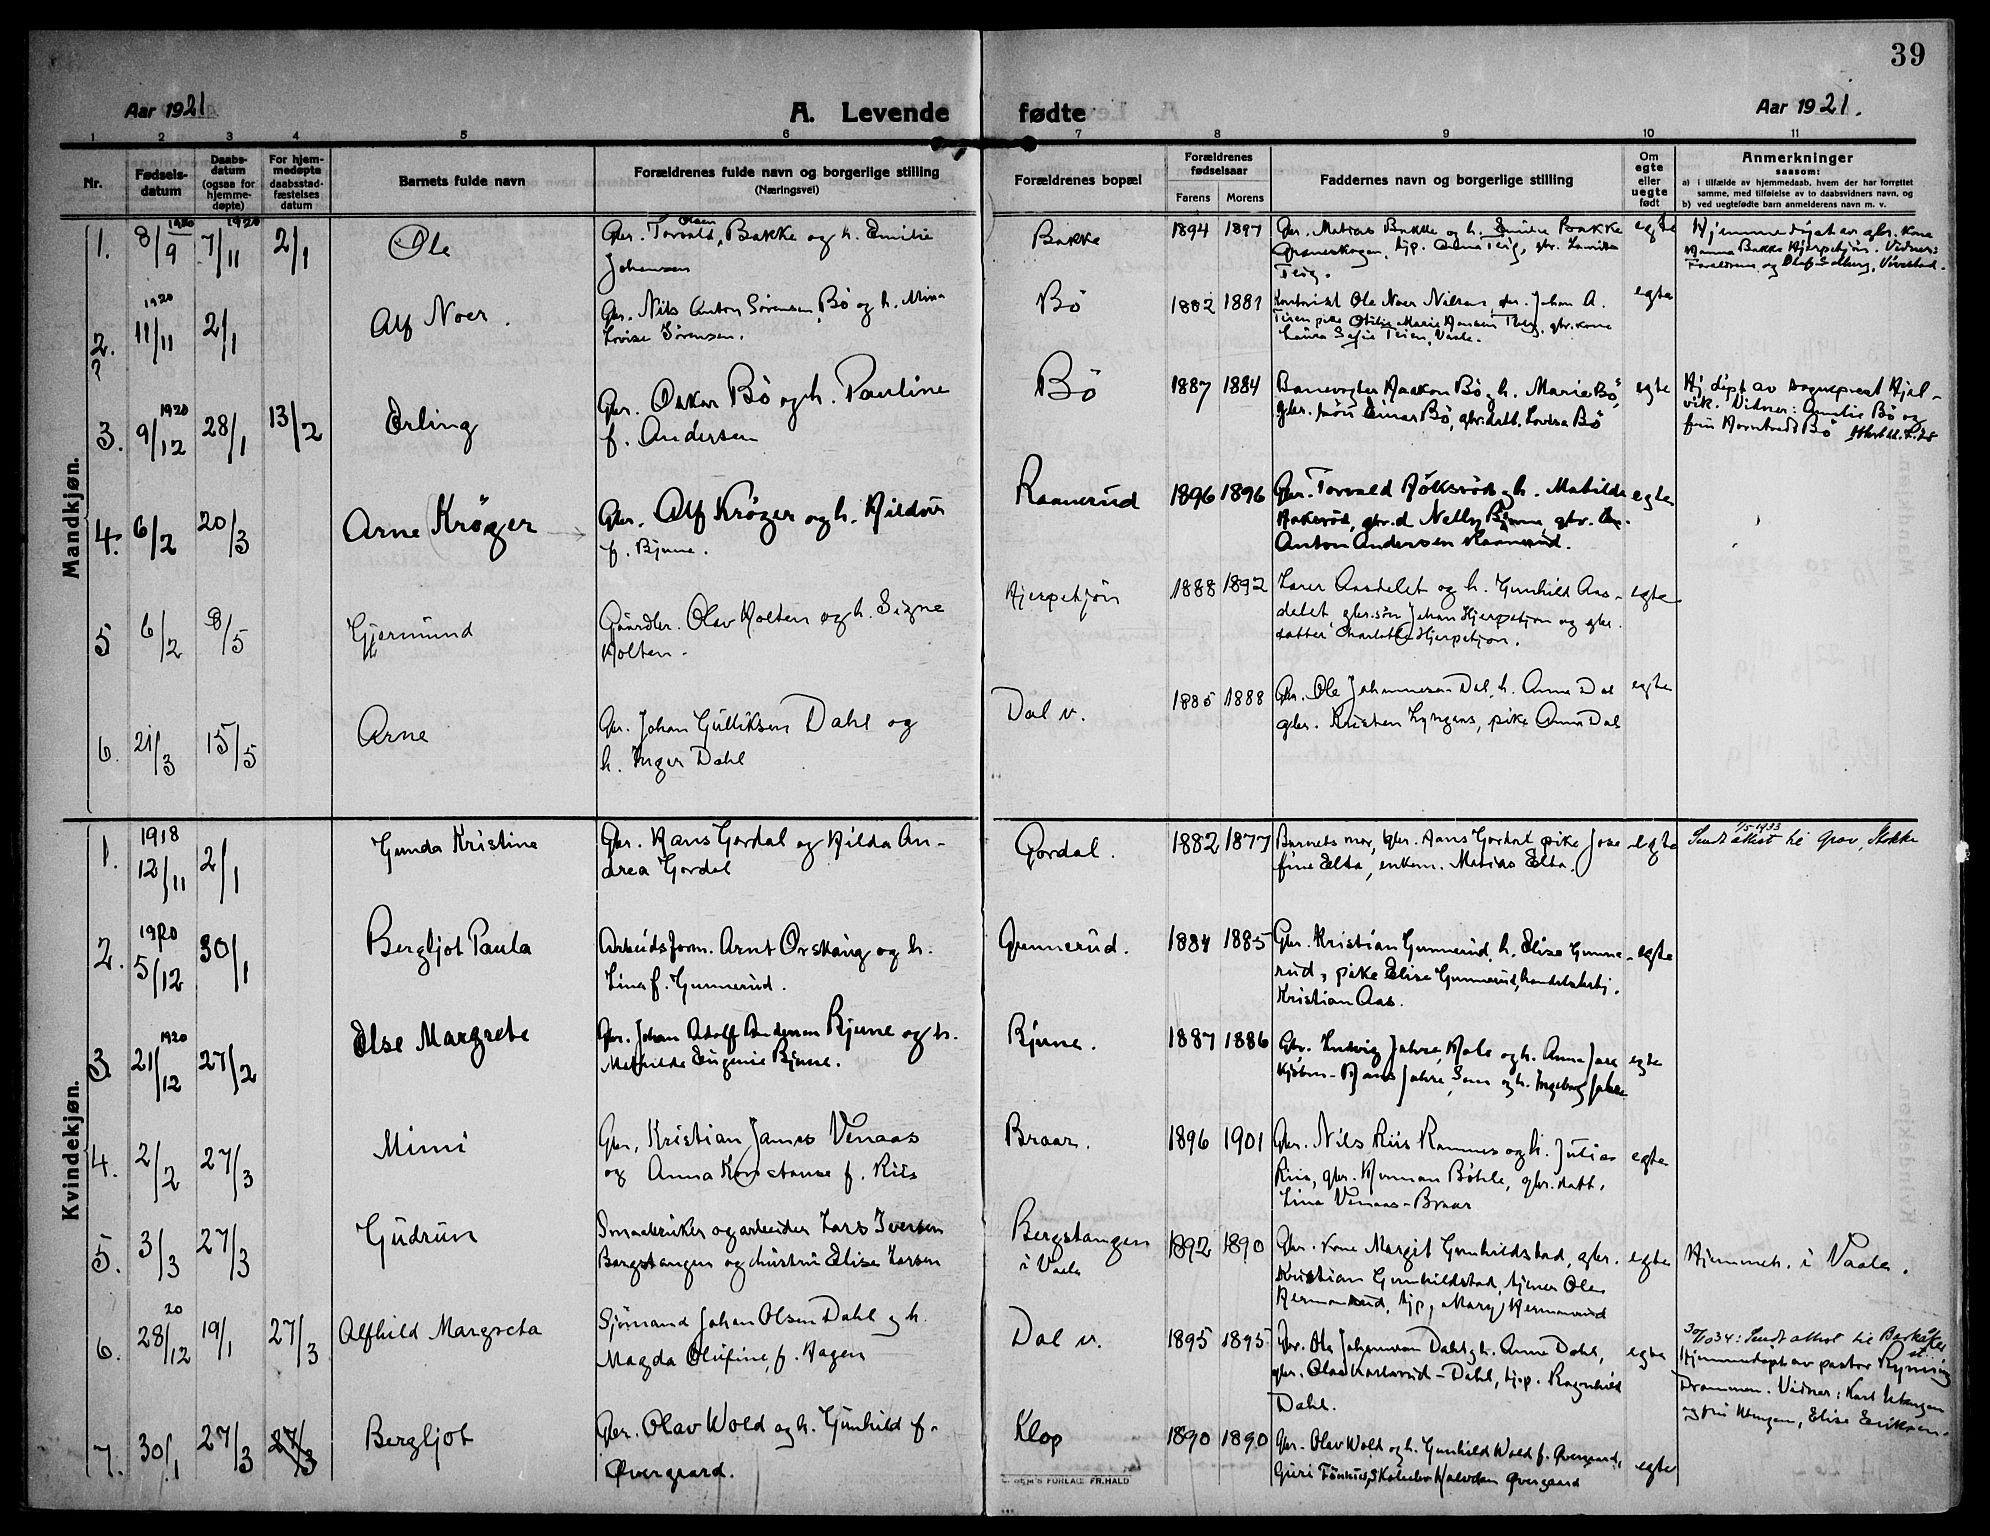 39
Aar 1921
A. Levende fødte
Aar 1921.
1 2 3 4 5 6 7 8 9 10 11
Nr.
Fødsels-
datum
Daabs-
datum
(ogsaa for
hjemme-
døpte)
For hjem-
medøpte
daabsstad-
fæstelses
datum
Barnets fulde navn
Forældrenes fulde navn og borgerlige stilling
(Næringsvei)
Forældrenes bopæl
Forældrenes
fødselsaar
Farens Morens
Faddernes navn og borgerlige stilling
Om
egte
eller
uegte
født
Anmerkninger
saasom:
a) i tilfælde av hjemmedaab, hvem der har forrettet
samme, med tilføielse av to daabsvidners navn, og
b) ved uegtefødte barn anmelderens navn m. v.
Mandkjøn.
1. 1920 8/9 1920 7/11 2/1 Ole
Gbr. Torvald Olsen Bakke og h. Emilie
Johansen
Bakke 1894 1897
Gbr. Matias Bakke og h. Emilie Bakke
tjp. Anna Teig, gbr. Lauritz
Teig.
egte
Hjemmedøpt av gbr. kone
Hanna Bakke Hjerpetjøn. Vidner:
Forældrene og Olaf Solberg, Vivestad.
2. 1920 11/11 2/1 Alf Noer.
Gbr. Nils Anton Sørensen Bö og h. Mina
Lovise Sørensen.
Bö 1882 1881
Kontorist Ole Noer Nilsen, Johan A.
Teien pike Otilie Marie Hansen Teig, gbr. kone
Laura Sofie Teien, Vaale.
egte
3. 1920 9/12 28/1 13/2 Erling
Gbr. Oskar Bö og h. Pauline
f. Andersen
Bö 1887 1884
Banevogter Haakon Bö, h. Marie Bö,
gbr. søn Einar Bö, gbr. datt. Lovisa Bö
egte
Hj. døpt av sogneprest Hjel-
vik. Vidner: Amalie Bö og
fru Bö
4. 6/2 20/3 Arne (Kröger
Gbr. Alf Kröger og h. Hildur
f. Bjune.
Raanerud 1896 1896
Gbr. Torvald og h. Matilde
gbr. d. Nelly Bjune, gbr.
Anton Andersen Raanerud.
egte
5 6/2 8/5 Gjermund
Gaardbr. Olav Holten og h. Signe
Holten.
Hjerpetjøn 1888 1892
Lærer Aasdelet og h. Gunhild Aas-
delet, gbr. søn Johan Hjerpetjøn og gbr.
datter Charlotte Hjerpetjøn.
egte
6. 21/3 15/5 Arne
Gbr. Johan Gulliksen Dahl og
h. Inger Dahl
Dal v. 1885 1888
Gbr. Ole Johannesen Dal, h. Anna Dal
gbr. Kristen Lyngaas, pike Anna Dal
egte
Kvindekjøn.
1. 1918 12/11 2/1 Gunda Kristine
Gbr. Hans Gordal og Hilda An-
drea Gordal
Gordal. 1882 1877
Barnets mor, gbr. Hans Gordal, pike Jose-
fine Elta, enkem. Matias Elta.
egte
1/5 1933
Sendt attest til Grav, Stokke
2. 1920 5/12 30/1 Bergljot Paula
Arbeidsform. Arnt Orskaug og h.
Lina f. Gunnerud.
Gunnerud. 1884 1885
Gbr. Kristian Gunnerud, h. Elise Gunne-
rud, pike Elise Gunnerud, handelsbetj.
Kristian Aas.
egte
3 1920 21/12 27/2 Else Margrete
Gbr. Johan Adolf Andersen Bjune og h.
Mathilde Eugenie Bjune.
Bjune. 1887 1886
Gbr. Ludvig Jahre, og h. Anna Jahre
Kjøbm. Hans Jahre, og h. Ingeborg Jahre
egte
4. 2/2 27/3 Mimi
Gbr. Kristian James Venaas
og Anna Konstanse f. Riis
Braar. 1896 1901
Gbr. Nils Riis Ramnes og h. Julie
Riis, gbr. Herman Böhle, gbr. datt.
Lina Venaas-Braar
egte
5. 3/3 27/3 Gudrun
Smaabruker og arbeider Lars Iversen
Bergstangen og hustru Elise Larsen
Bergstangen
i Vaale
1892 1890
Gbr. kone Margit Gunhildstad, gbr.
Kristian Gunhildstad, tjener Ole
Hermanrud, tjp. Mary Hermanrud
egte
Hjemmeh. i Vaale.
6. 20 28/12 19/1 27/3 Alfhild Margreta
Sjømand Johan Olsen Dahl og h.
Magda Olufine f. Hagen
Dal v. 1895 1895
Gbr. Ole Johannesen Dahl og h. Anna Dahl,
gbr. Olaf - Dahl, tjp. Ragnhild
Dahl.
egte
30/10 34: Sendt attest til Barkaaker
st.
Hjemmedøpt av pastor Rynning
Drammen. Vidner: Karl
og fru Elise Eriksen.
7. 30/1 27/3 27/3 Bergljot
Gbr. Olav Wold og h. Gunhild f.
Øvergaard.
Klop 1890 1890
Gbr. Olav Wold og h. Gunhild Wold f. Øvergaard,
Guri Halvdan Øvergaard
egte
FORLAG FR. HALD